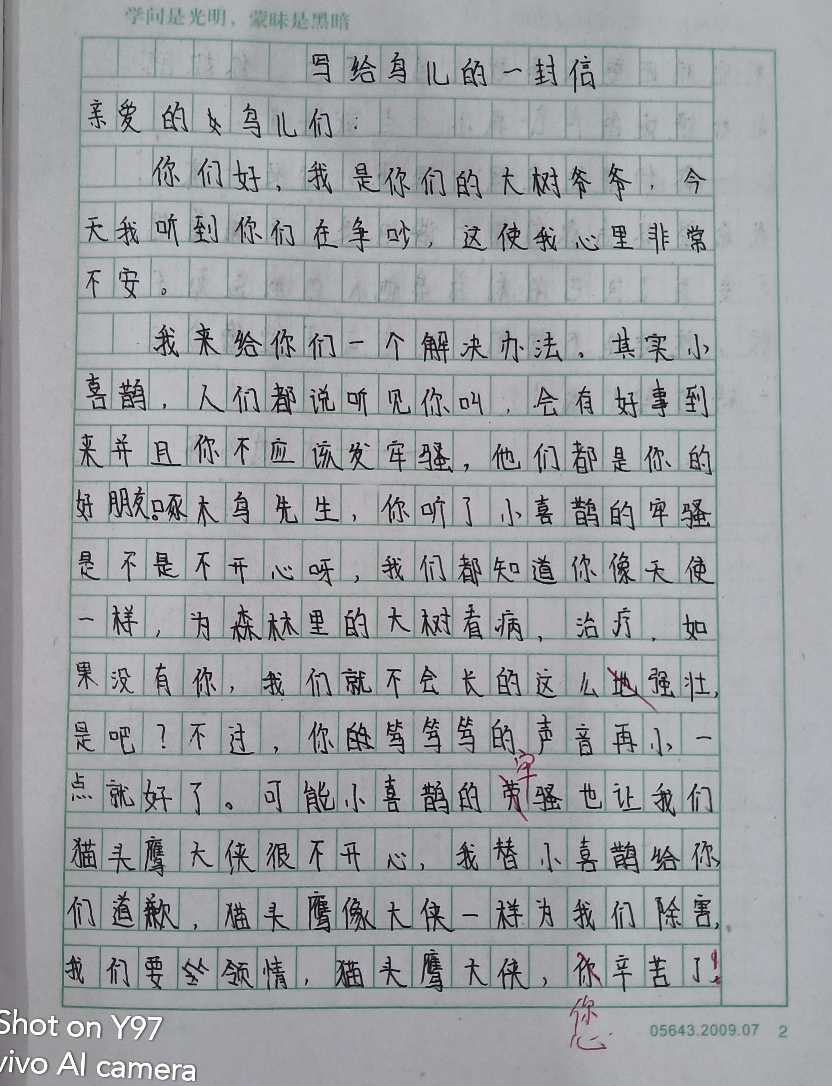 学问是光明，蒙昧是黑暗
写给鸟儿的一封信
亲爱的鸟儿们：
你们好，我是你们的大树爷爷，今
天我听到你们在争吵，这使我心里非常
不安。
我来给你们一个解决办法。其实小
喜鹊，人们都说听见你叫，会有好事到
来并且你不应该发牢骚，他们都是你的
好朋友啄木鸟先生，你听了小喜鹊的牢骚
是不是不开心呀，我们都知道你像天使
一样，为森林里的大树看病，治疗，如
果没有你，我们就不会长的这么强壮，
是吧？不过，你的笃笃笃的声音再小一
点就好了。可能小喜鹊的牢骚也让我们
猫头鹰大侠很不开心，我替小喜鹊给你
们道歉，猫头鹰像大侠一样为我们除害，
我们要领情，猫头鹰大侠，你辛苦了！
您
05643.2009.07 2
Shot on Y97
vivo AI camera